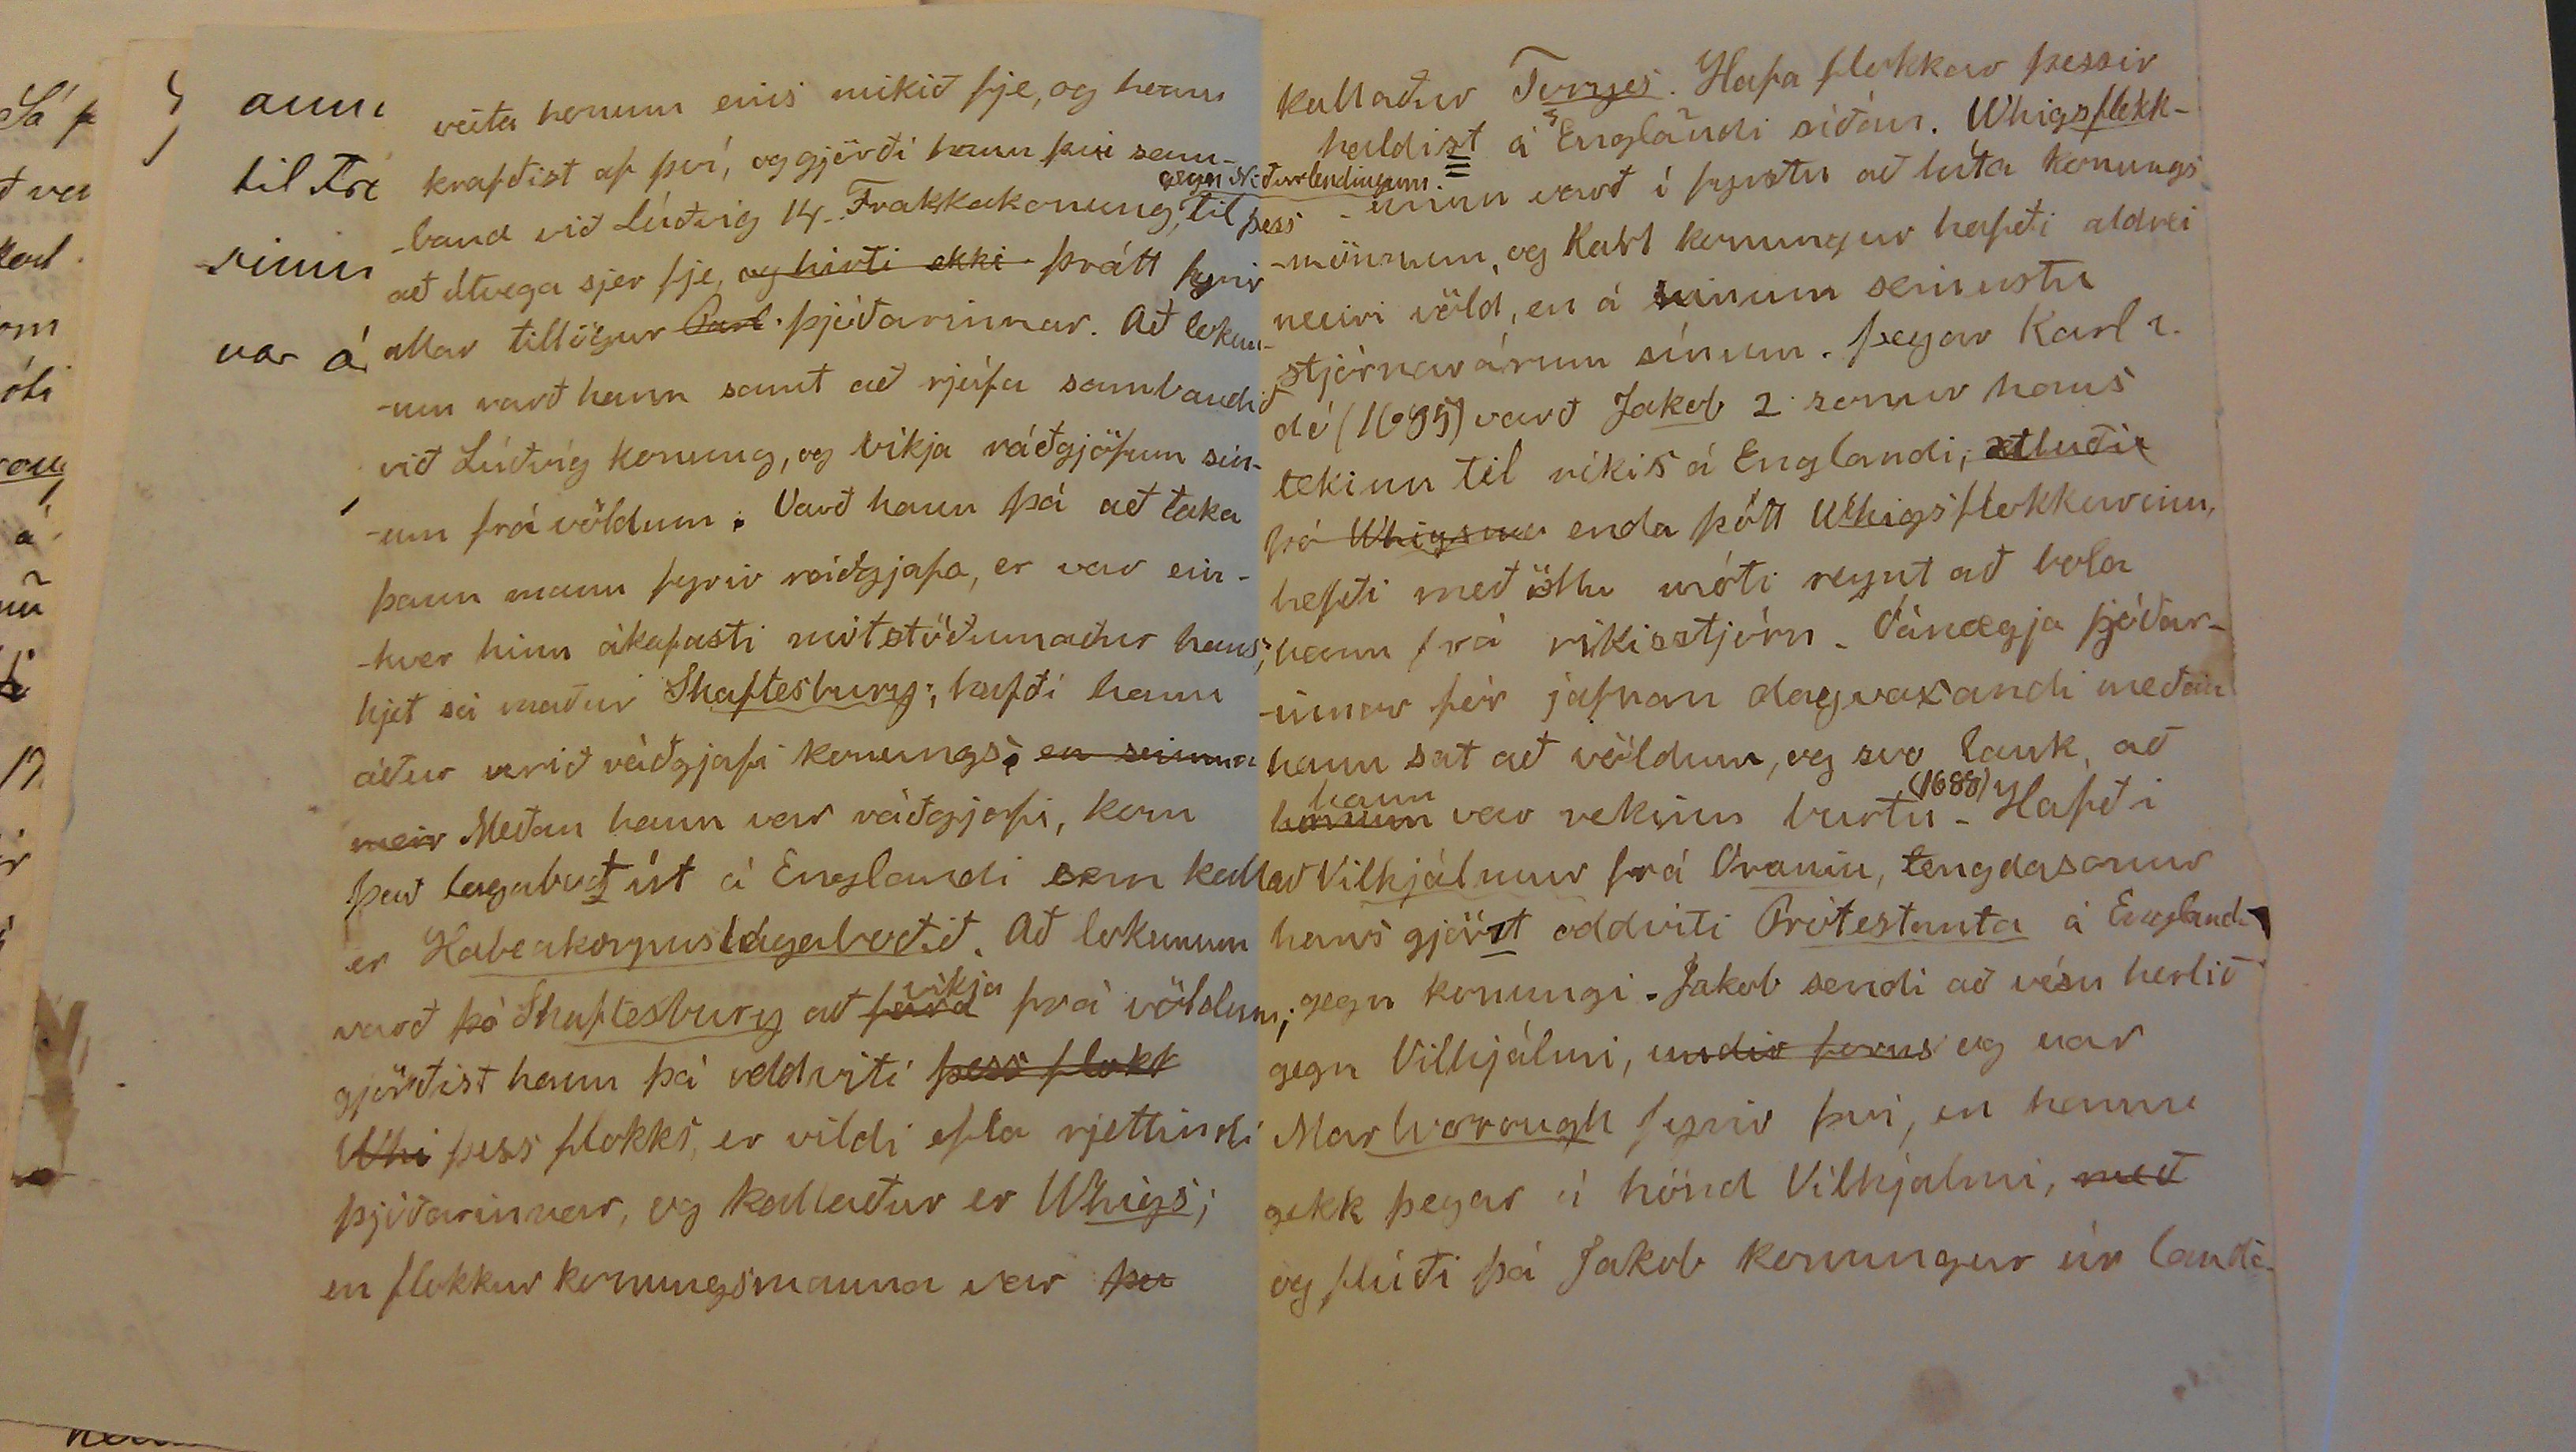 veita honum eins mikið fje, og hann
krafðist af því, og gjörði hann því sam-
gegn Niðurlendingum
-band við Lúðvig 14. Frakkakonung, til þess
að útvega sjer fje, og hirti ekki þrátt fyrir
allar tillögur Parl. þjóðarinnar. Að lokun-
-um varð hann samt að rjúfa sambandið
við Lúðvíg konung, og víkja ráðgjöfum sín-
-um frá völdum. Varð hann þá að taka
þann mann fyrir ráðgjafa, er var ein-
-hver hinn ákafasti mótstöðumaður hans;
hjet sá maður Shaftesbury; hafði hann
áður verið ráðgjafi konungs, en seinna
meir Meðan hann var ráðgjafi, kom
það lagaboð út á Englandi sem kallað
er Habeakorpuslagaboðið. Að lokunum
varð þó Shaftesbury að fara víkja frá völdum;
gjörðist hann þá oddviti þess flokk
Whi þess flokks, er vildi efla rjettindi
þjóðarinnar, og kallaður er Whigs;
en flokkur konungsmanna var þa
kallaður Torryes. Hafa flokkar þessir
haldist á Englandi síðan. Whigsflokk-
-urinn varð í fyrstu að lúta konungs
-mönnum, og Karl konungur hafði aldrei
meiri völd, en á hinum seinustu
stjórnarárum sínum. Þegar Karl 2.
dó (1685) varð Jakob 2 sonur hans
tekinn til ríkis á Englandi,
þó Whigsme enda þótt Whigsflokkurinn,
hefði með öllu móti reynt að bola
hann frá ríkisstjórn. Óánægja þjóðar-
-innar fór jafnan dagvaxandi meðan
hann sat að völdum, og svo lauk, að
honum hann var rekinn burtu (1688). Hafði
Vilhjálmur frá Oraníu, tengdasonur
hans gjörst oddviti Prótestanta á Englandi
gegn konungi. Jakob sendi að vísu herlið
gegn Vilhjálmi, undir forus og var
Marlborough fyrir því, en hann
gekk þegar á hönd Vilhjálmi, með
og flúði þá Jakob konungur úr landi.